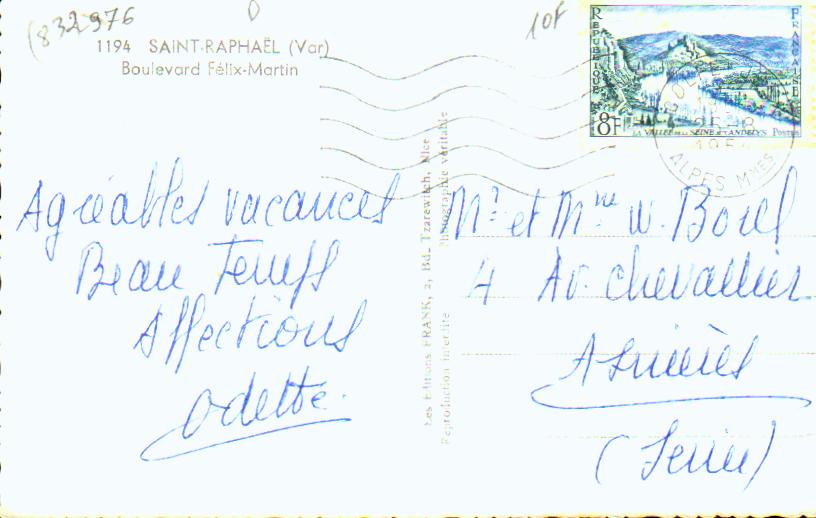 (832976
10f
1194 SAINT-RAPHAËL (Var)
Boulevard Félix-Martin
RÉPUBLIQUE
FRANÇAISE
8F
LA VALLÉE DE LA SEINE AUX ANDELYS Postes
25-8
ALPES MMES
Agréables vacances
Beau Temps
Affections
Odette.
Les Editions FRANK, 2, Bd. Tzarewitch, Nice
Reproduction interdite Photographie véritable
Mr et Mme W. Borel
4 Av. Chevallier
Asnières
(Seine)